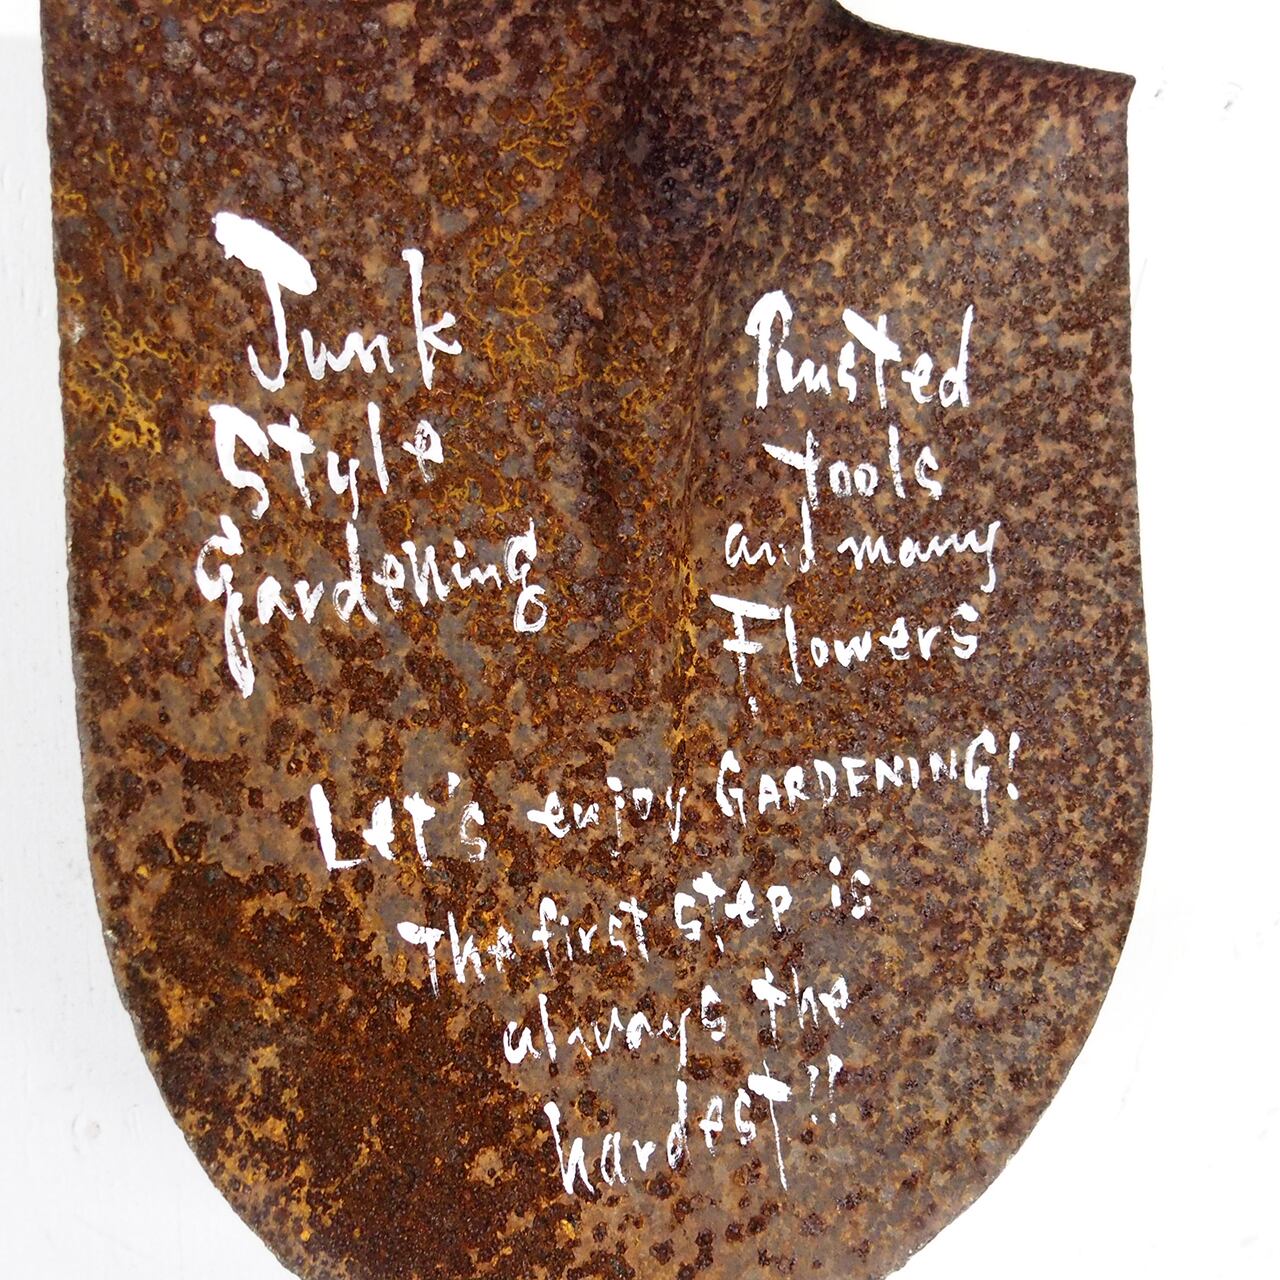 Junk
Style
Gardening
Rusted
tools
and many
Flowers
Let's enjoy GARDENING!
The first step is
always the
hardest!!